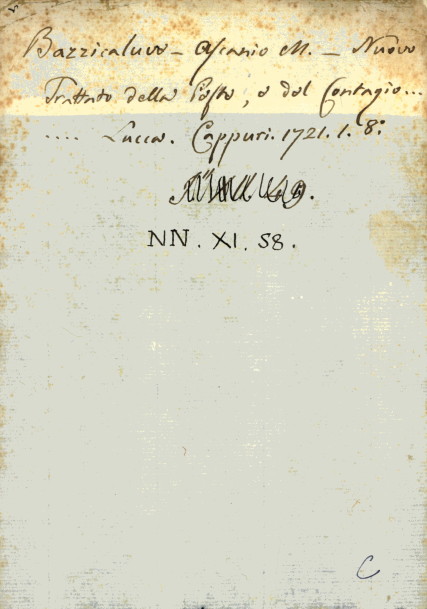 Bazzicaluve – Ascanio M. – Nuovo
Trattato della Peste, o dal Contagio...
.... Lucca. Cappuri. 1721. 1. 8°
NN. XI. 58.
C